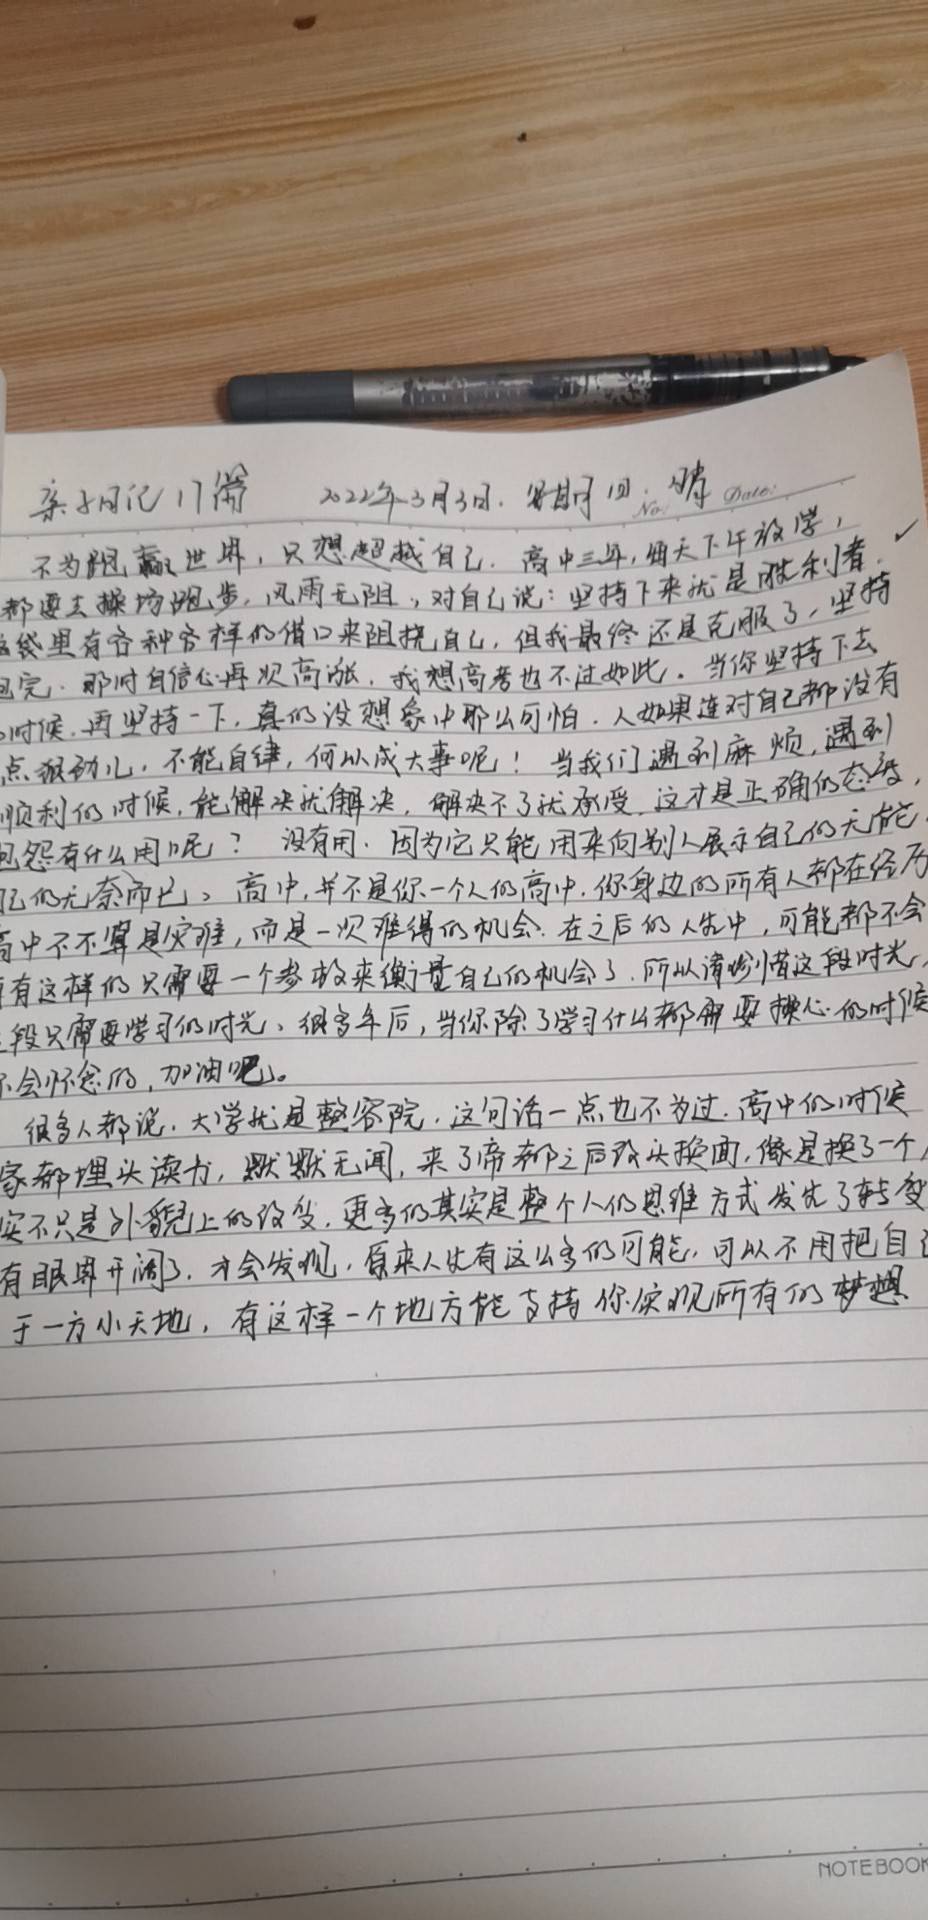 亲子日记17篇 2022年3月3日. 星期四. 晴 No: Date:
不为跑赢世界，只想超越自己. 高中三年，每天下午放学，
都要去操场跑步，风雨无阻，对自己说：坚持下来就是胜利者.
袋里有各种各样的借口来阻挠自己，但我最终还是克服了，坚持
跑完. 那时自信心再次高涨，我想高考也不过如此。当你坚持下去
时候，再坚持一下，真的没想象中那么可怕. 人如果连对自己都没有
点狠劲儿，不能自律，何以成大事呢！当我们遇到麻烦，遇到
顺利的时候，能解决就解决，解决不了就承受，这才是正确的态度，
抱怨有什么用呢？ 没有用. 因为它只能用来向别人展示自己的无能，
己的无奈而已。高中，并不是你一个人的高中，你身边的所有人都在经历
高中不不算是灾难，而是一次难得的机会. 在之后的人生中，可能都不会
有这样的只需要一个参数来衡量自己的机会了. 所以请珍惜这段时光，
段只需要学习的时光、很多年后，当你除了学习什么都需要操心的时候
会怀念的，加油吧。
很多人都说，大学就是整容院，这句话一点也不为过. 高中的时候
家都埋头读书，默默无闻，来了帝都之后改头换面，像是换了一个人
实不只是外貌上的改变，更多的其实是整个人的思维方式发生了转变
有眼界开阔了，才会发现，原来人生有这么多的可能，可以不用把自己
于一方小天地，有这样一个地方能支持你实现所有的梦想
NOTEBOOK